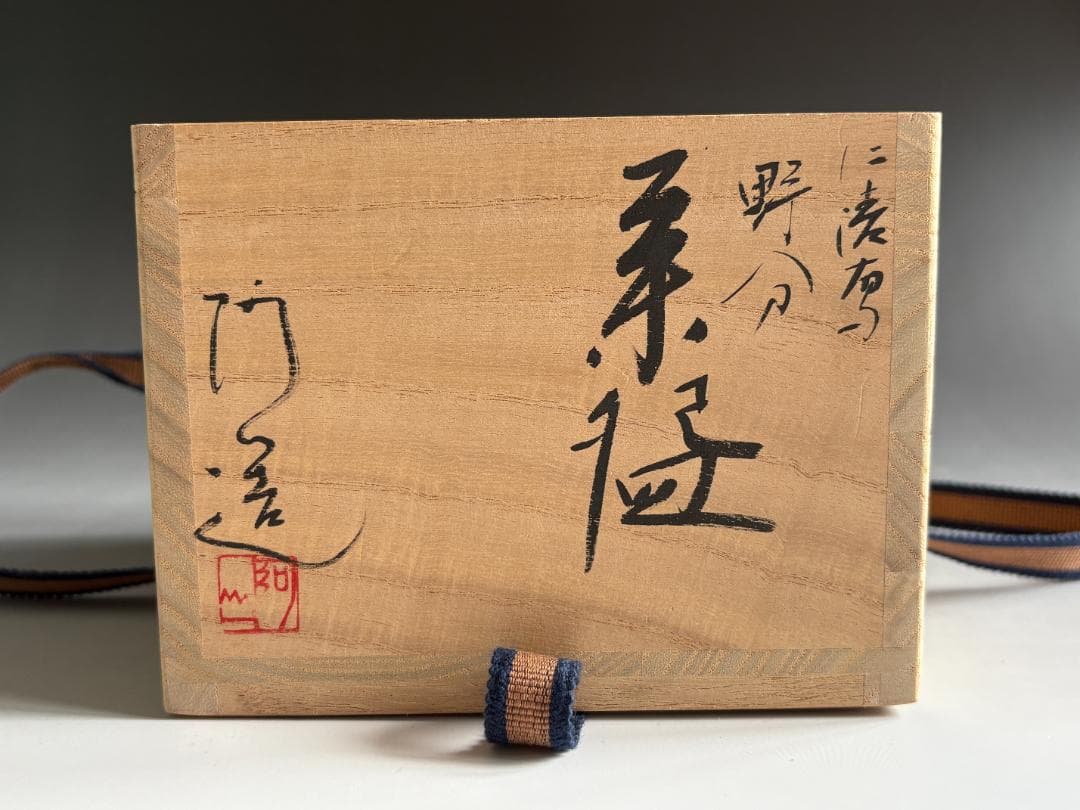 仁清写
野分
茶盌
阿造